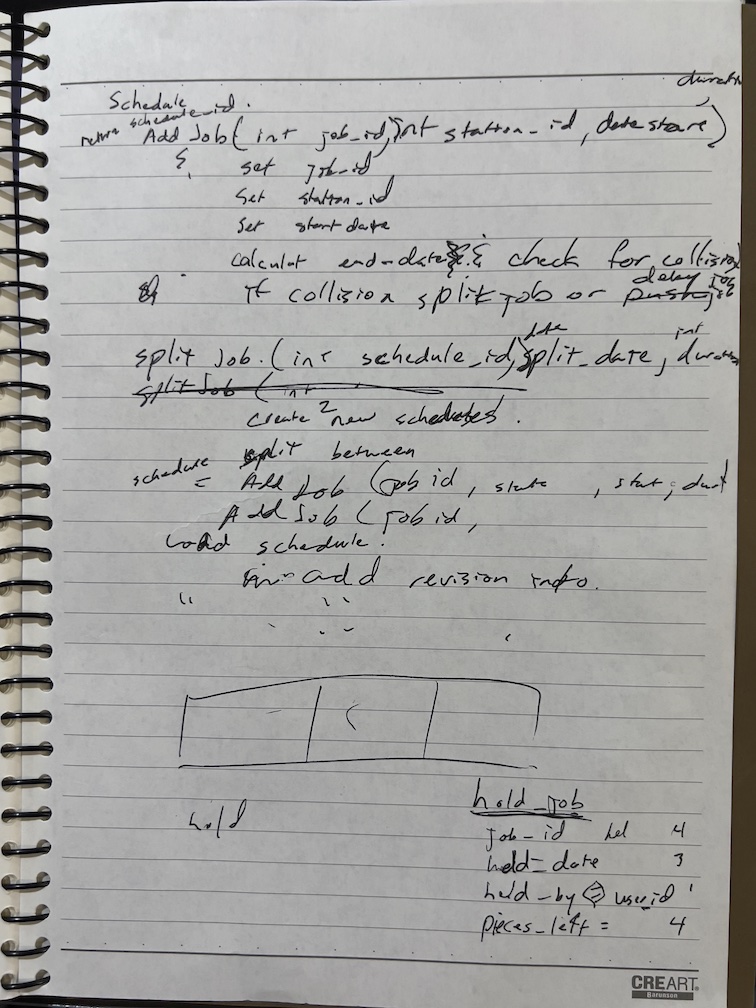 duration
Schedule
return schedule_id.
Add Job( int job_id, int station_id, date start )
{ set job_id
Set station_id
Set start date
calculat end-date & check for collision
If collision split job or delay job
split Job. (int schedule_id, date split_date, int duration
split Job ( int
create 2 new schedules.
split between
schedule = Add Job (job id, state , start, durat
Add Job (job id,
Load schedule.
add revision info.
" "
hold
hold_job
job_id hel 4
held_date 3
held_by user_id 1
pieces_left = 4
CREART
Barunson